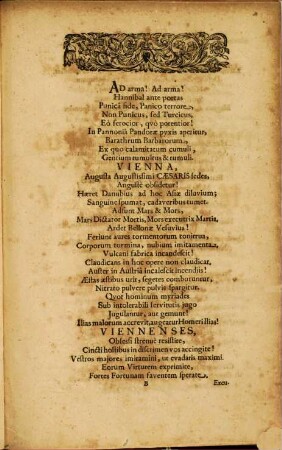 AD arma! Ad arma!
Hannibal ante portas
Punicâ fide, Panico terrore,
Non Punicus, sed Turcicus,
Eò ferocior, qvò potentior!
In Pannoniâ Pandoræ pyxis aperitur,
Barathrum Barbarorum,
Ex quo calamitatum cumuli,
Gentium tumultus & tumuli.
VIENNA,
Augusta Augustissimi CÆSARIS sedes,
Angustè obsidetur!
Hæret Danubius ad hoc Asiæ diluvium;
Sanguine spumat, cadaveribus tumet.
Adsunt Mars & Mors,
Mars Dictator Mortis, Mors executrix Martis,
Ardet Bellonæ Vesuvius!
Feriunt aures tormentorum tonitrua,
Corporum termina, nubium imitamenta,
Vulcani fabrica incandescit!
Claudicans in hoc opere non claudicat,
Auster in Austriâ incalescit incendiis!
Æstas æstibus urit, segetes comburuntur,
Nitrato pulvere pulvis spargitur,
Quot hominum myriades
Sub intolerabili servitutis jugo
Jugulantur, aut gemunt!
Ilias malorum accrevit, augeatur Homeri Ilias!
VIENNENSES,
Obsessi strenuè resistite,
Cincti hostibus in discrimen vos accingite!
Vestros majores imitamini, ut evadatis maximi.
Eorum Virtutem exprimite,
Fortes Fortunam faventem sperate.
B Excu-